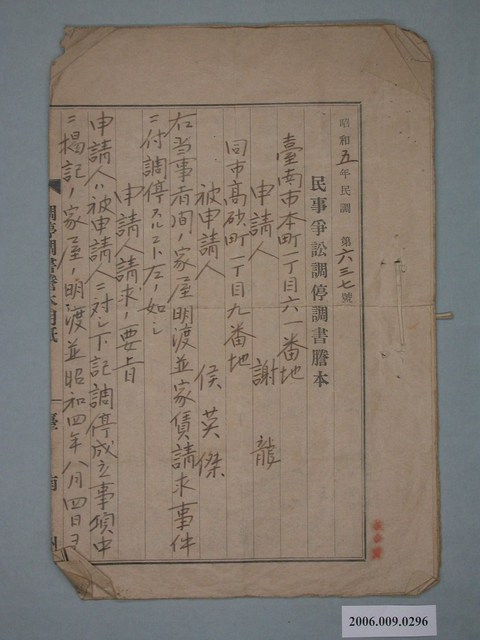 昭和五年民調 第六三七號
民事爭訟調停調書謄本
臺南市本町一丁目六一番地
申請人 謝龍
同市高砂町一丁目九番地
被申請人 侯英傑
右当事者間ノ家屋明渡並家賃請求事件
ニ付調停スルコト左ノ如シ
申請人請求ノ要旨
申請人ハ被申請人ニ対シ下記調停成立事項中
ニ揭記ノ家屋ノ明渡並昭和四年八月四日ヨ
調停調書謄本用紙
臺南州
2006.009.0296